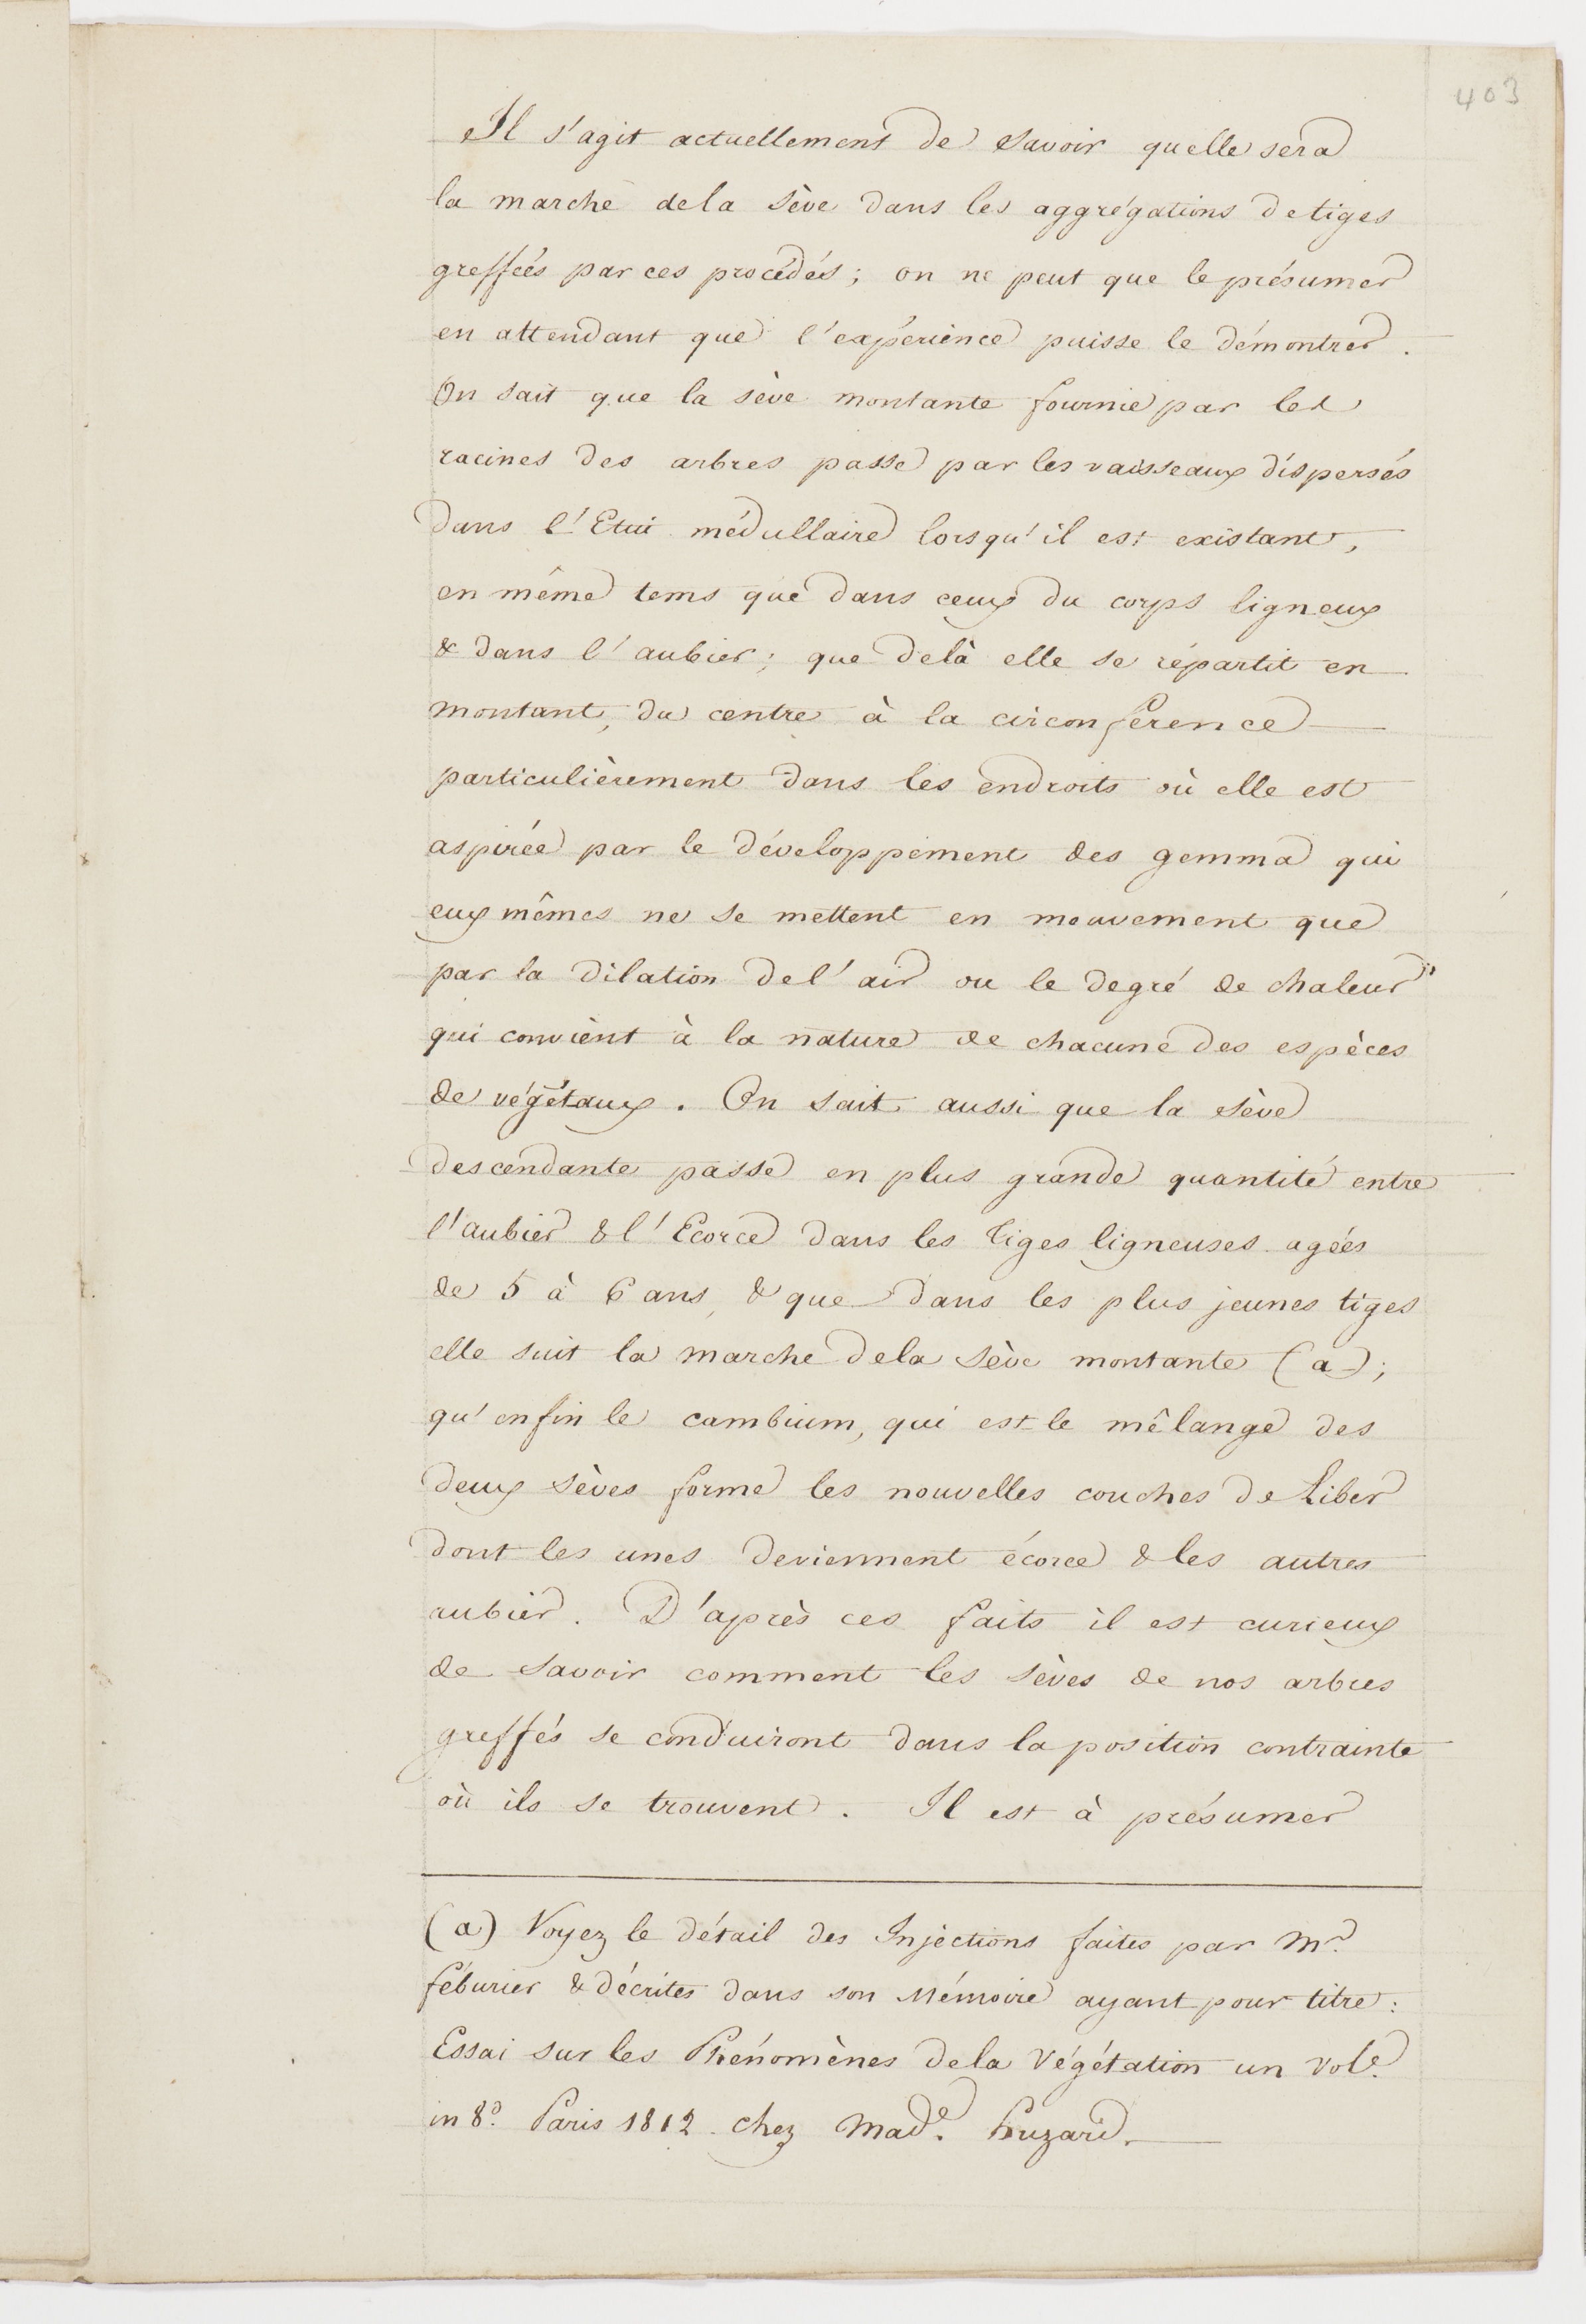 403
Il s'agit actuellement de savoir quelle sera
la marche de la sève dans les aggrégations de tiges
greffées par ces procédés ; on ne peut que le présumer
en attendant que l'expérience puisse le démontrer.
On sait que la sève montante fournie par les
racines des arbres passe par les vaisseaux dispersés
dans l'Etui médullaire lorsqu'il est existant,
en même tems que dans ceux du corps ligneux
& dans l'aubier ; que delà elle se répartit en
montant, du centre à la circonférence
particulièrement dans les endroits où elle est
aspirée par le développement des gemma qui
eux mêmes ne se mettent en mouvement que
par la dilation de l'air ou le degré de chaleur
qui convient à la nature de chacune des espèces
de végétaux. On sait aussi que la sève
descendante passe en plus grande quantité entre
l'aubier & l'Ecorce dans les tiges ligneuses agées
de 5 à 6 ans, & que dans les plus jeunes tiges
elle suit la marche de la sève montante (a) ;
qu'enfin le cambium, qui est le mêlange des
deux sèves forme les nouvelles couches de Liber
dont les unes deviennent écorce & les autres
aubier. D'après ces faits il est curieux
de savoir comment les sèves de nos arbres
greffés se conduiront dans la position contrainte
où ils se trouvent. Il est à présumer
(a) Voyez le détail des Injections faites par Mr.
féburier & décrites dans son Mémoire ayant pour titre :
Essai sur les Phénomènes de la Végétation un vol.e
in 8.o Paris 1812. chez Mad.e huzard.